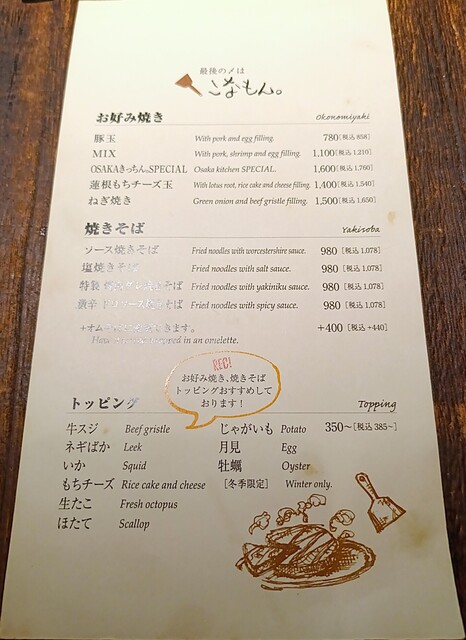 最後の〆は
こなもん。
お好み焼き Okonomiyaki
豚玉 With pork and egg filling. 780 [税込 858]
MIX With pork, shrimp and egg filling. 1,100 [税込 1,210]
OSAKAきっちん。SPECIAL Osaka kitchen SPECIAL. 1,600 [税込 1,760]
蓮根もちチーズ玉 With lotus root, rice cake and cheese filling. 1,400 [税込 1,540]
ねぎ焼き Green onion and beef gristle filling. 1,500 [税込 1,650]
焼きそば Yakisoba
ソース焼きそば Fried noodles with worcestershire sauce. 980 [税込 1,078]
塩焼きそば Fried noodles with salt sauce. 980 [税込 1,078]
特製 焼きそば Fried noodles with yakiniku sauce. 980 [税込 1,078]
激辛 ソース焼きそば Fried noodles with spicy sauce. 980 [税込 1,078]
+オム きます。 +400 [税込 +440]
wrapped in an omelette.
REC!
お好み焼き、焼きそば
トッピングおすすめして
おります!
トッピング Topping
牛スジ Beef gristle じゃがいも Potato 350~ [税込 385~]
ネギばか Leek 月見 Egg
いか Squid 牡蠣 Oyster
もちチーズ Rice cake and cheese [冬季限定] Winter only.
生たこ Fresh octopus
ほたて Scallop